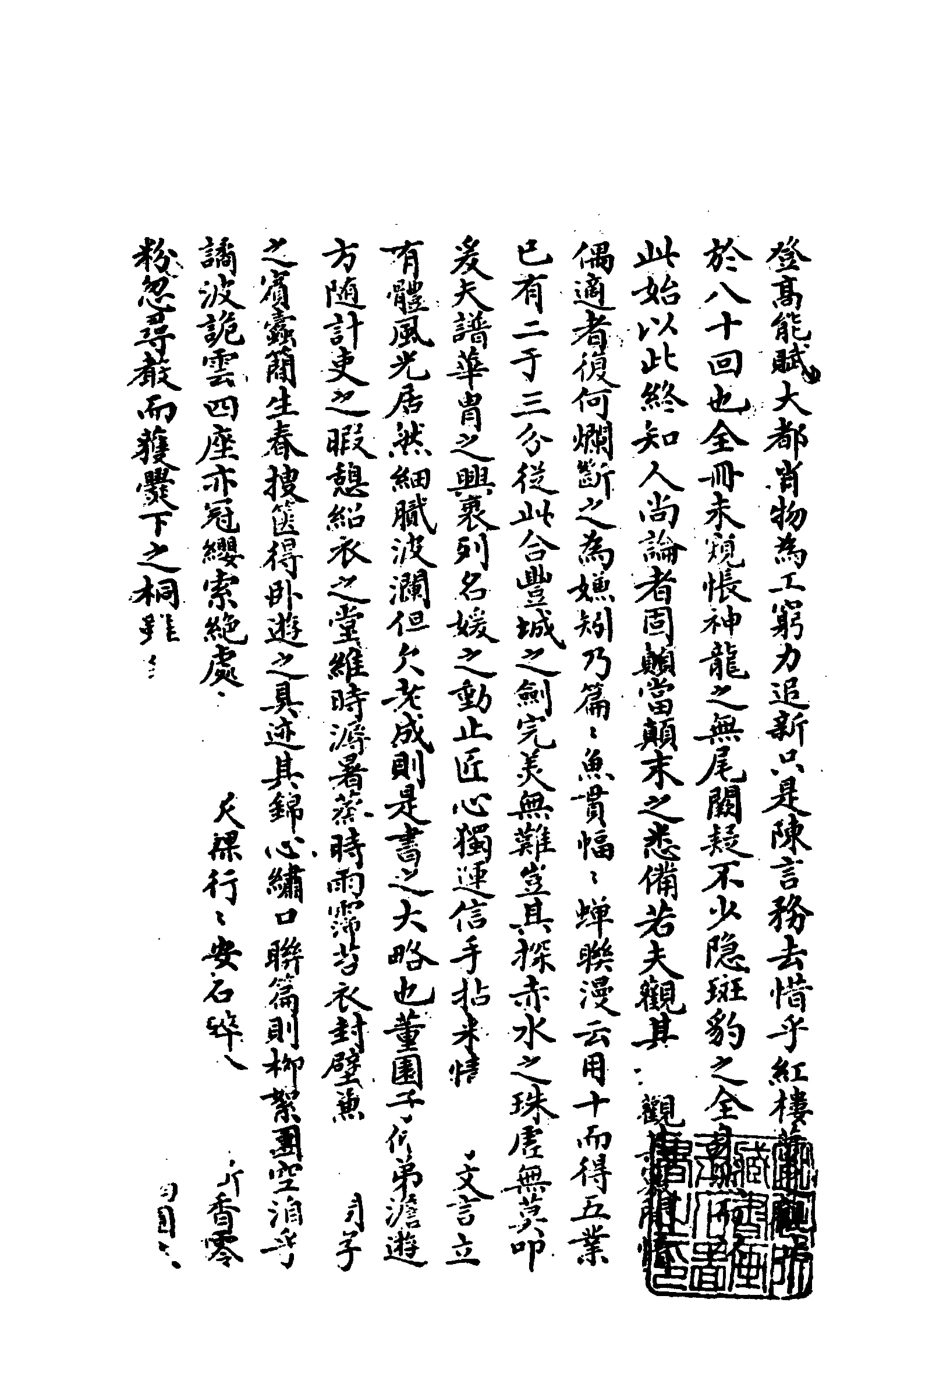 登高能賦大都肖物為工窮力追新只是陳言務去惜乎紅樓夢之觀止
於八十回也全冊未窺悵神龍之無尾闕疑不少隱斑豹之全身然而以
此始以此終知人尚論者固顛當顛末之悉備若夫觀其 觀其
偶適者復何爛斷之為嫌矧乃篇〻魚貫幅〻蟬聯漫云用十而得五業
已有二于三分從此合豐城之劍完美無難豈其探赤水之珠虛無莫叩
爰夫譜華胄之興衰列名媛之動止匠心獨運信手拈来情 文言立
有體風光居然細膩波瀾但欠老成則是書之大略也董園子 弟澹遊
方随計吏之暇憩紹衣之堂維時溽暑蒸時雨霈苔衣封壁兼
之賓蠹蕳生春搜篋得卧遊之具迹其錦心繡口聯篇則柳絮團空洎乎
譎波詭雲四座亦冠纓索絶處 灰裸行〻安石碎 香零
粉忽尋散而獲爨下之桐雖